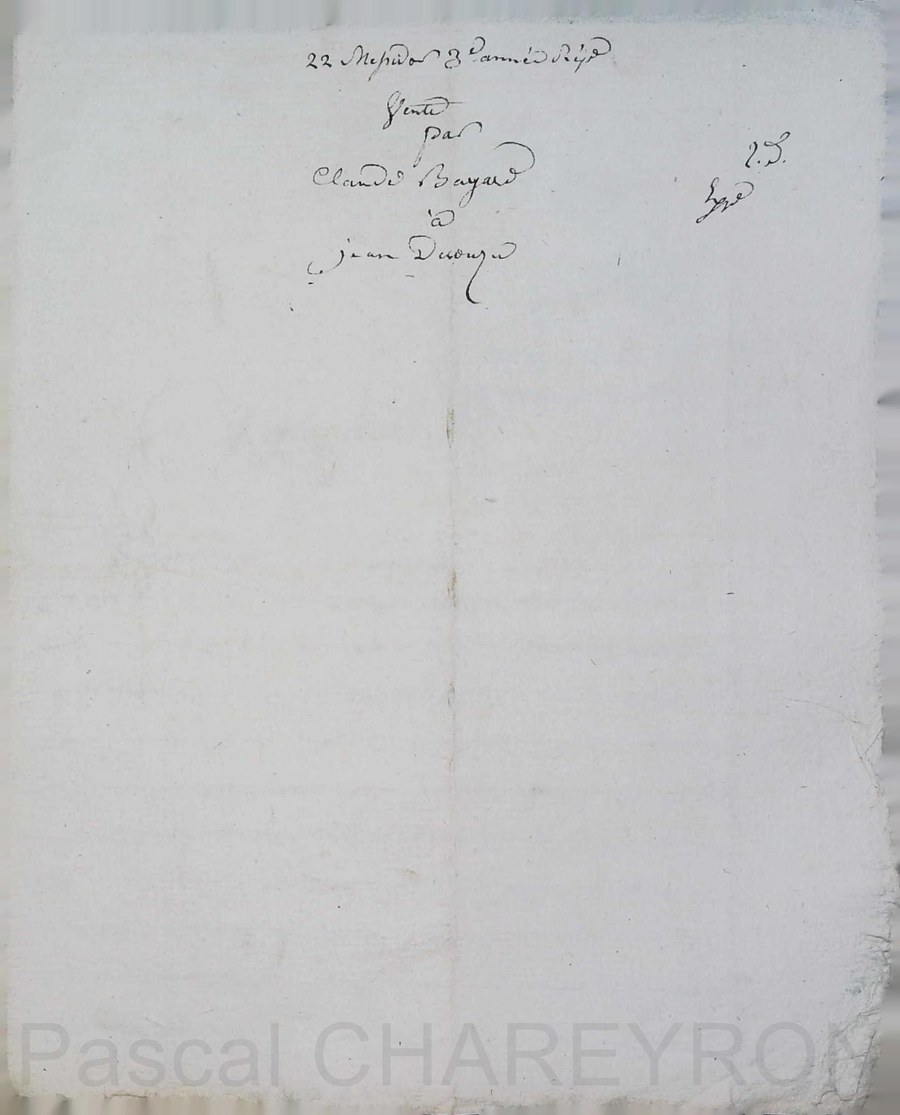 22 Messidor 3e année Répe
Vente
par
Claude Bayard
à
jean
2. D.
Expé
Pascal CHAREYRON